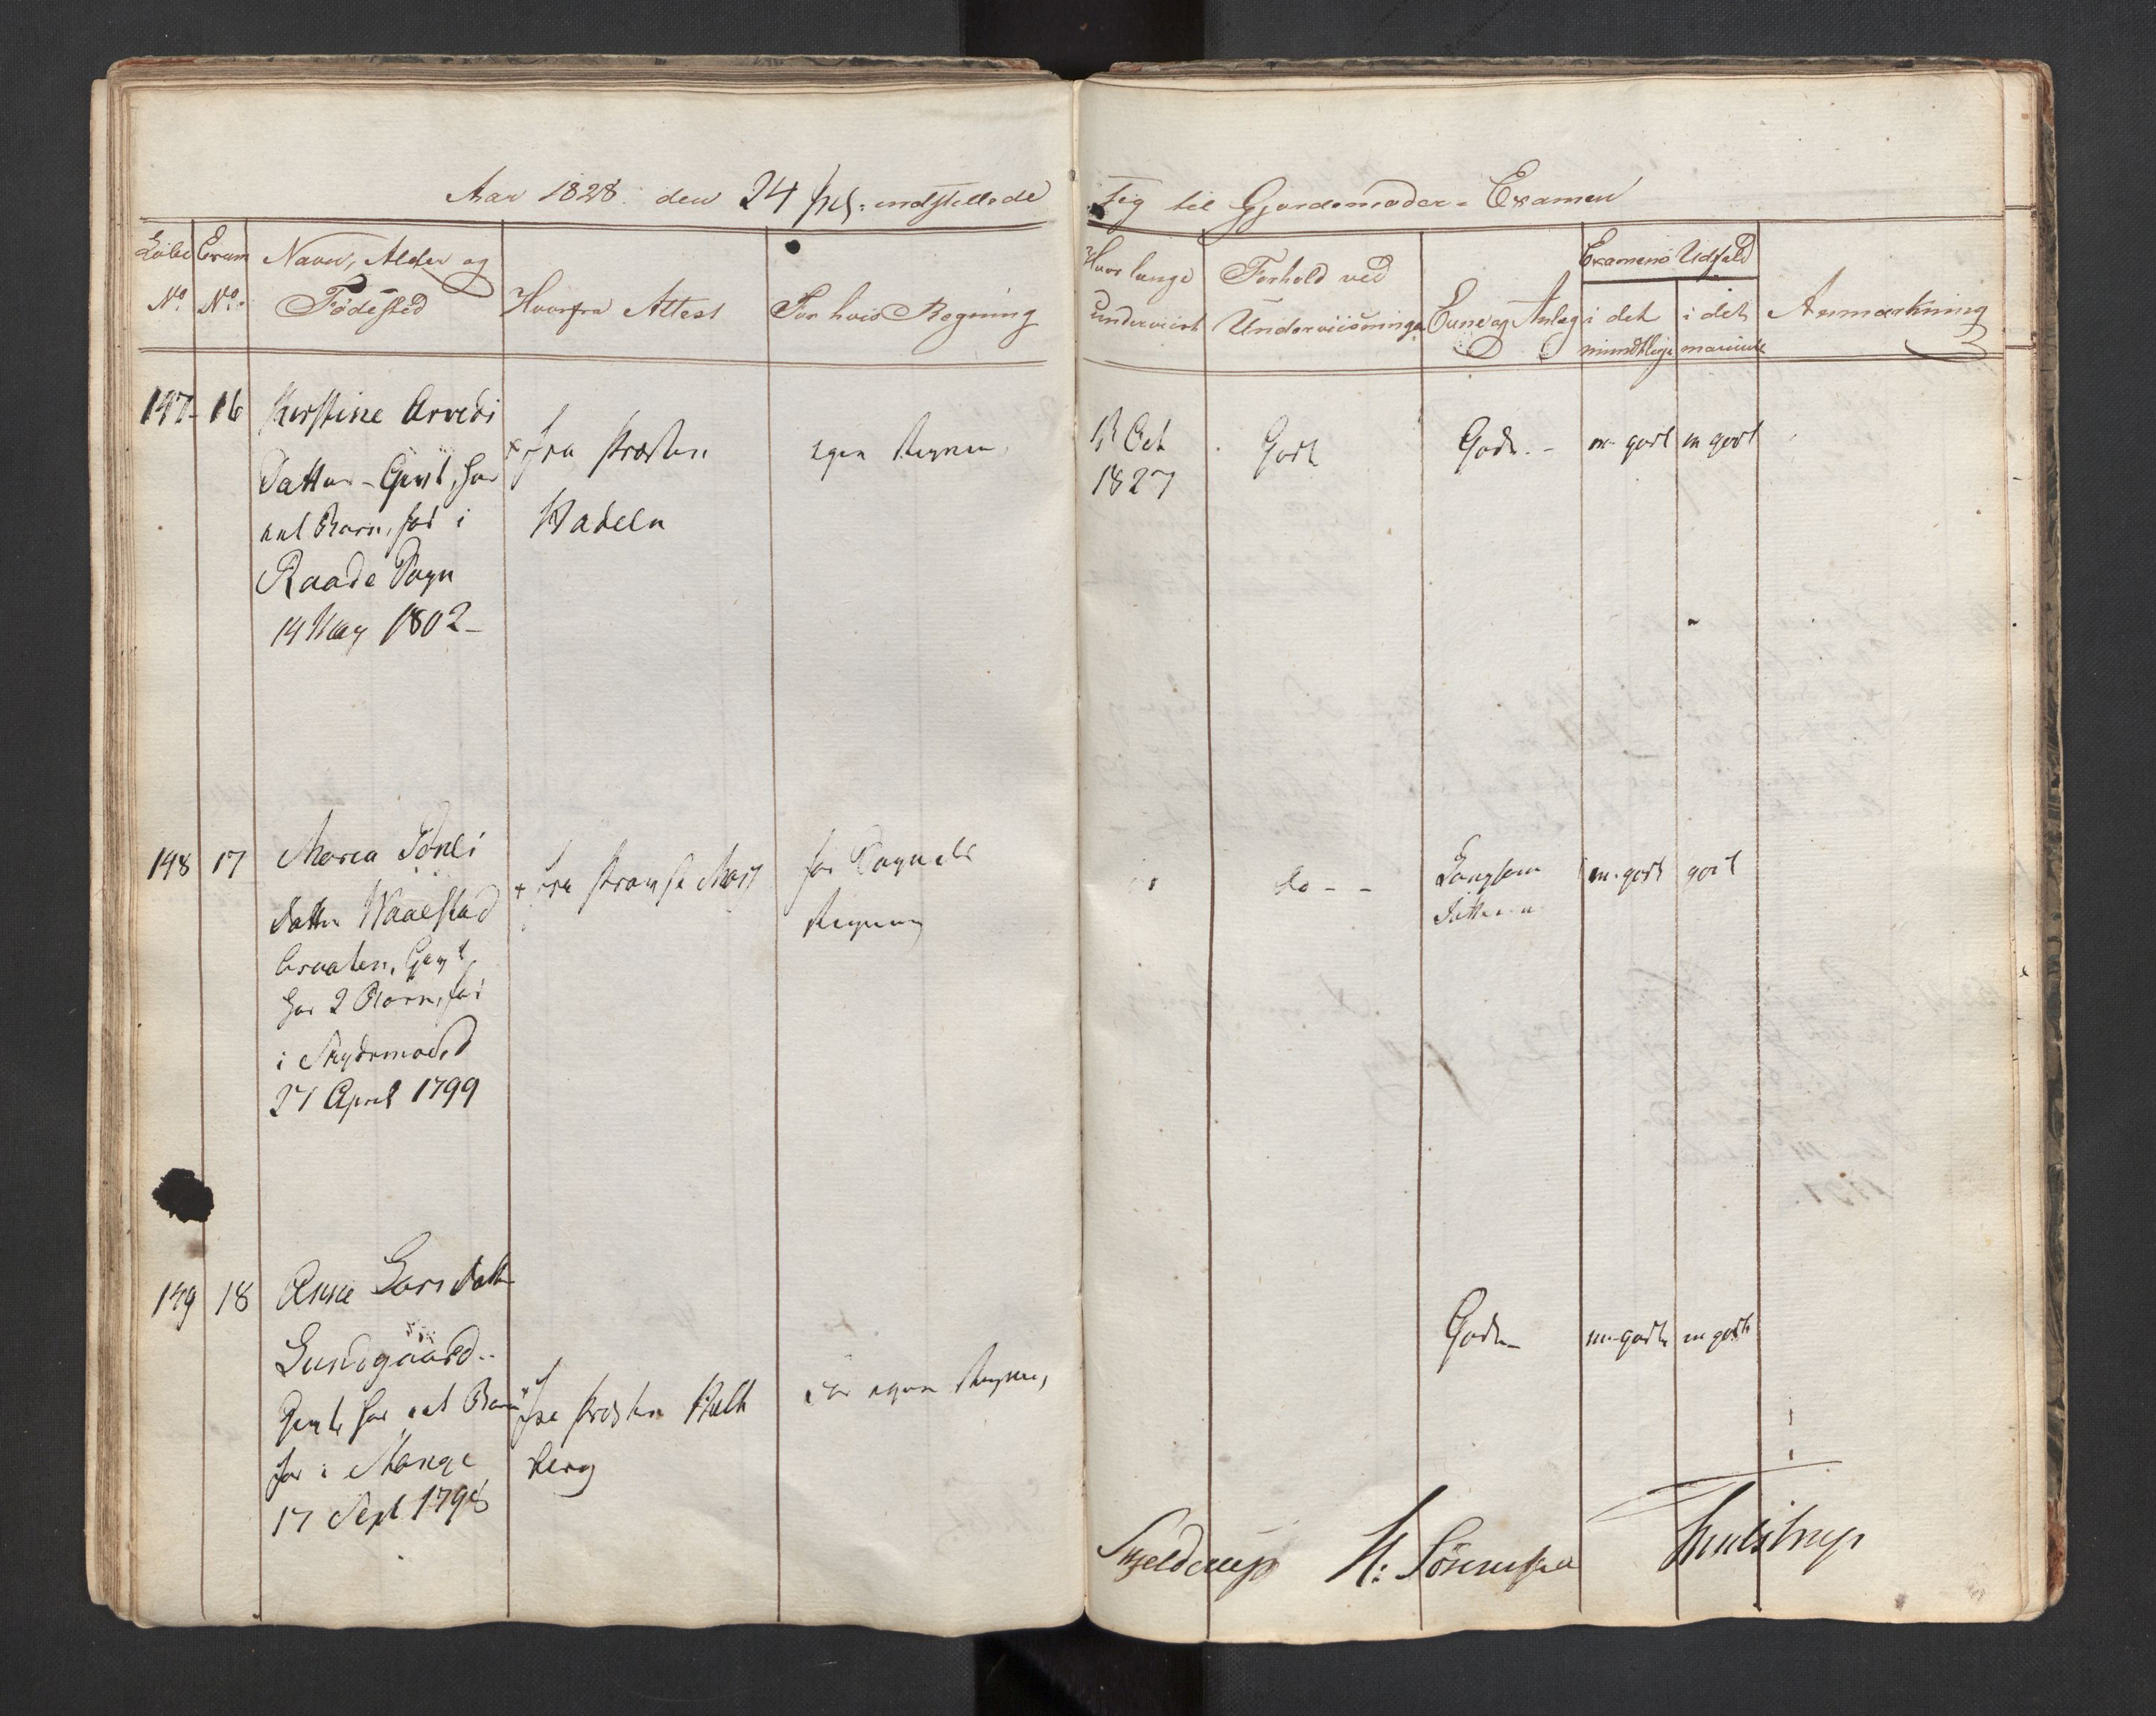 Aar 1828. den 24 indstillede
sig til Gjordemoder-Examen
Løbe
No.
Exam
No.
Navn, Alder og
Fødested
Hvorfra Attest
For hvis Regning
Hvor længe
underviist
Forhold ved
Underviisningen
Evne og Anlæg
Examens Udfald
i det
mundtlige
i det
manuele
Anmærkning
147- 16 Kirstine Arvedi
Datter - Givt, har
eet Barn, fød i
Raade Sogn
14 May 1802-
fra Præsten
Wadeln
egen Regning
13 Oct
1827
Godt
Gode. - m-godt m godt
148 17 Maria Pouls
datter Waalstad
braaten, Gavt
har 2 Børn, fød
i Skydsmoe
27 April 1799
fra
for Sognets
Regning
do - -
Langsom
m-godt godt
149 18 Anne Larsdatter
Lundgaard -
Gavt har eet Barn
fød i Mange
17 Sept 1798
fra Præsten Halt
berg
for egen Regning
Gode - m-godt m godt
Skjelderup M: Sørenssen Thulstrup